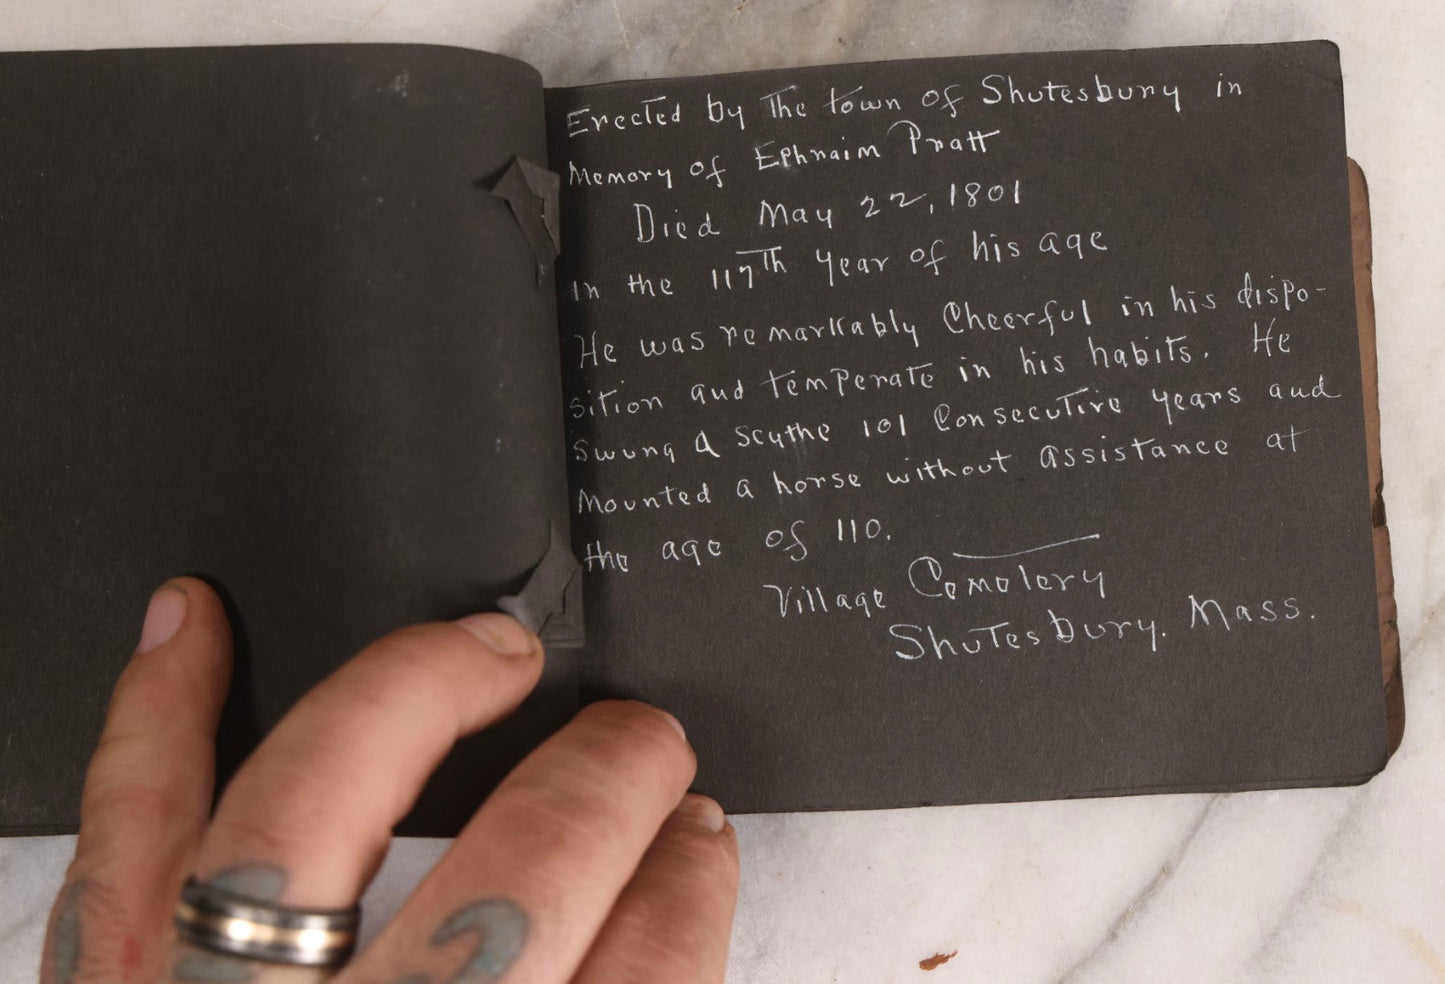 Erected by The town of Shutesbury in
Memory of Ephraim Pratt
Died May 22, 1801
In the 117th year of his age
He was remarkably Cheerful in his dispo-
sition and temperate in his habits. He
Swung a Scythe 101 Consecutive years and
Mounted a horse without assistance at
the age of 110.
Village Cemetery
Shutesbury. Mass.